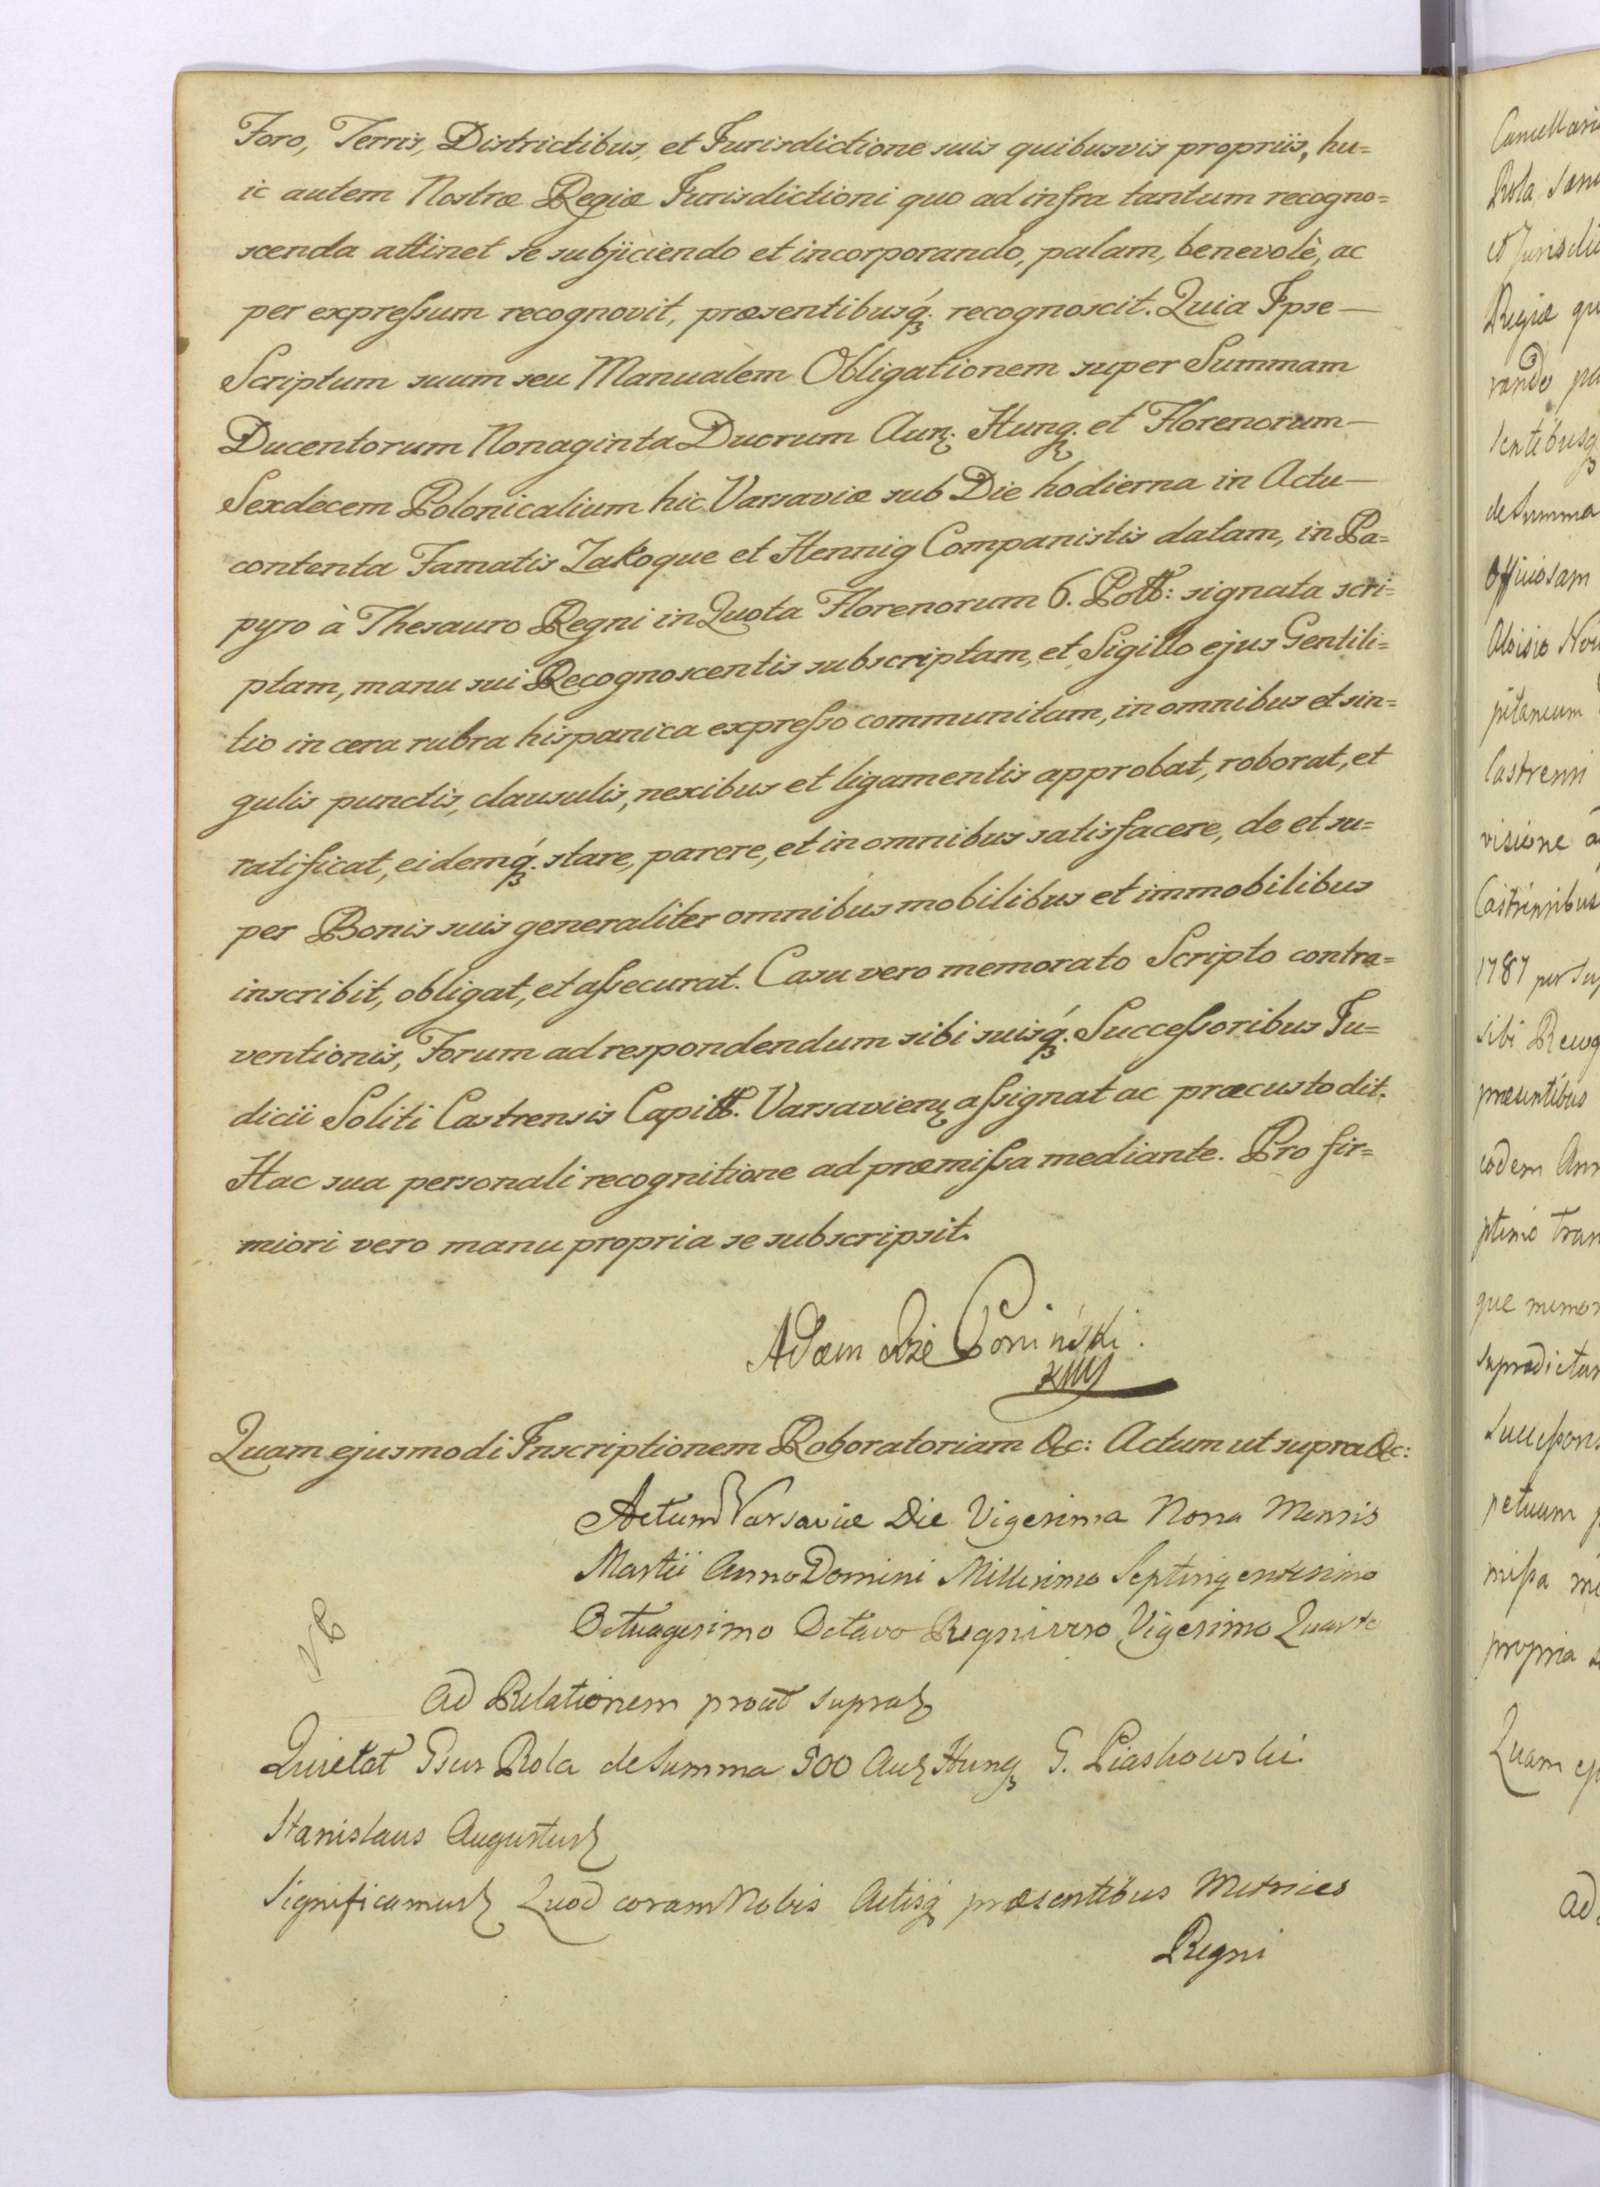 Foro, Terris, Districtibus, et Jurisdictione suis quibusvis propriis, hu=
ic autem Nostræ Regiæ Jurisdictioni quo ad infra tantum recogno=
scenda attinet se subjiciendo et incorporando, palam, benevolè, ac
per expressum recognovit, præsentibusq́. recognoscit. Quia Ipse —
Scriptum suum seu Manualem Obligationem super Summam
Ducentorum Nonaginta Duorum Aur. Hung. et Florenorum —
Sexdecem Polonicalium hic Varsaviæ sub Die hodierna in Actu —
contenta Famatis Jakoque et Hennig Companistis datam, in Pa=
pyro à Thesauro Regni in Quota Florenorum 6. Poll: signata scri=
ptam, manu sui Recognoscentis subscriptam, et Sigillo ejus Gentili=
tio in cera rubra hispanica expresso communitam, in omnibus et sin=
gulis punctis, clausulis, nexibus et ligamentis approbat, roborat, et
ratificat, eidemq́. stare, parere, et in omnibus satisfacere, de et su=
per Bonis suis generaliter omnibus mobilibus et immobilibus
inscribit, obligat, et assecurat. Casu vero memorato Scripto contra=
ventionis, Forum ad respondendum sibi suisq́. Successoribus Ju=
dicii Soliti Castrensis Capitl. Varsavien assignat ac præcustodit.
Hac sua personali recognitione ad præmissa mediante. Pro fir=
miori vero manu propria se subscripsit.
Adam Xże Poniński
Quam ejusmodi Inscriptionem Roboratoriam &c: Actum ut supra &c:
Actum Varsaviæ Die Vigesima Nona Mensis
Martii Anno Domini Millesimo Septingentesimo
Octuagesimo Octavo Regni vero Vigesimo Quarto
Ad Relationem prout supra
Quietat Gsus Rola de Summa 500 Aur Hung G. Piaskowski
Stanislaus Augustus
Significamus Quod coram Nobis Actisq præsentibus Metrices
Regni
Cancellari
Rola
et Jurisdi
Regiæ
rando
sentibusq
de Summa
Officiosam
Aloisio
pitaneum
Castrensi
visione
Castrensibus
1787 per
sibi Recog
præsentibus
eodem Ann
ptimo
que memor
supradictam
Successori
petuum
missa
propria
Quam
ad